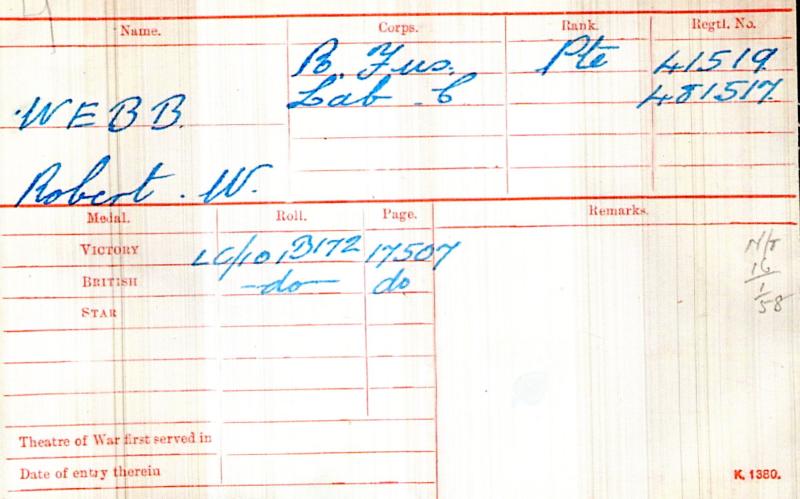 Name. Corps. Rank. Regtl. No.
R. Fus. Pte 41519
Lab C 481517
WEBB.
Robert. W.
Medal. Roll. Page. Remarks.
VICTORY LC/101B172 17507
BRITISH -do- do
STAR
N/T
16
1
58
Theatre of War first served in
Date of entry therein
K. 1380.